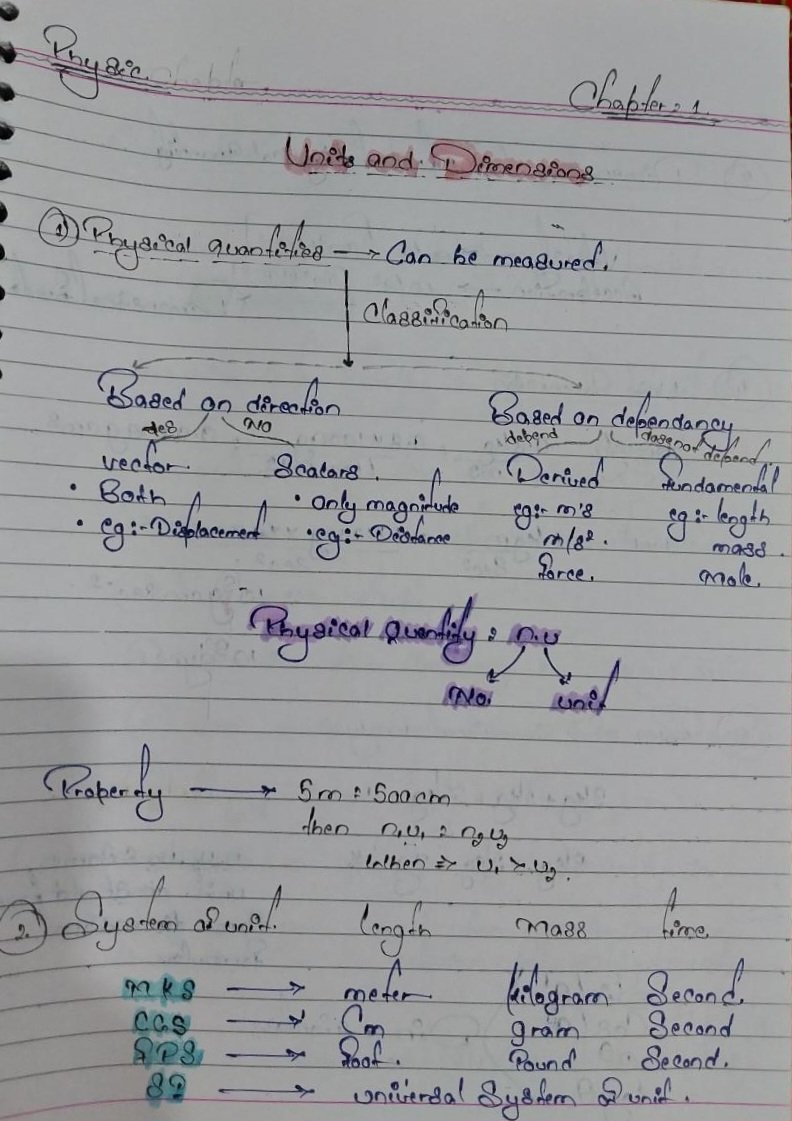 Physic.
Chapter: 1.
Units and Dimensions
1) Physical quantities → Can be measured.
Classification
Based on direction
Based on dependancy
yes NO
depend does not depend.
vector. Scalars. Derived fundamental
• Both • only magnitude eg:- m/s eg:- length
• eg:- Displacement • eg:- Distance m/s². mass.
force. Mole.
Physical quantity = n.u
No. unit
Property → 5m = 500cm
then n₁u₁ = n₂u₂
when ⇒ u₁ > u₂.
2. System of unit. length mass time.
MKS → meter kilogram Second.
CGS → Cm gram Second
FPS → foot. Pound Second.
SI → universal System of unit.